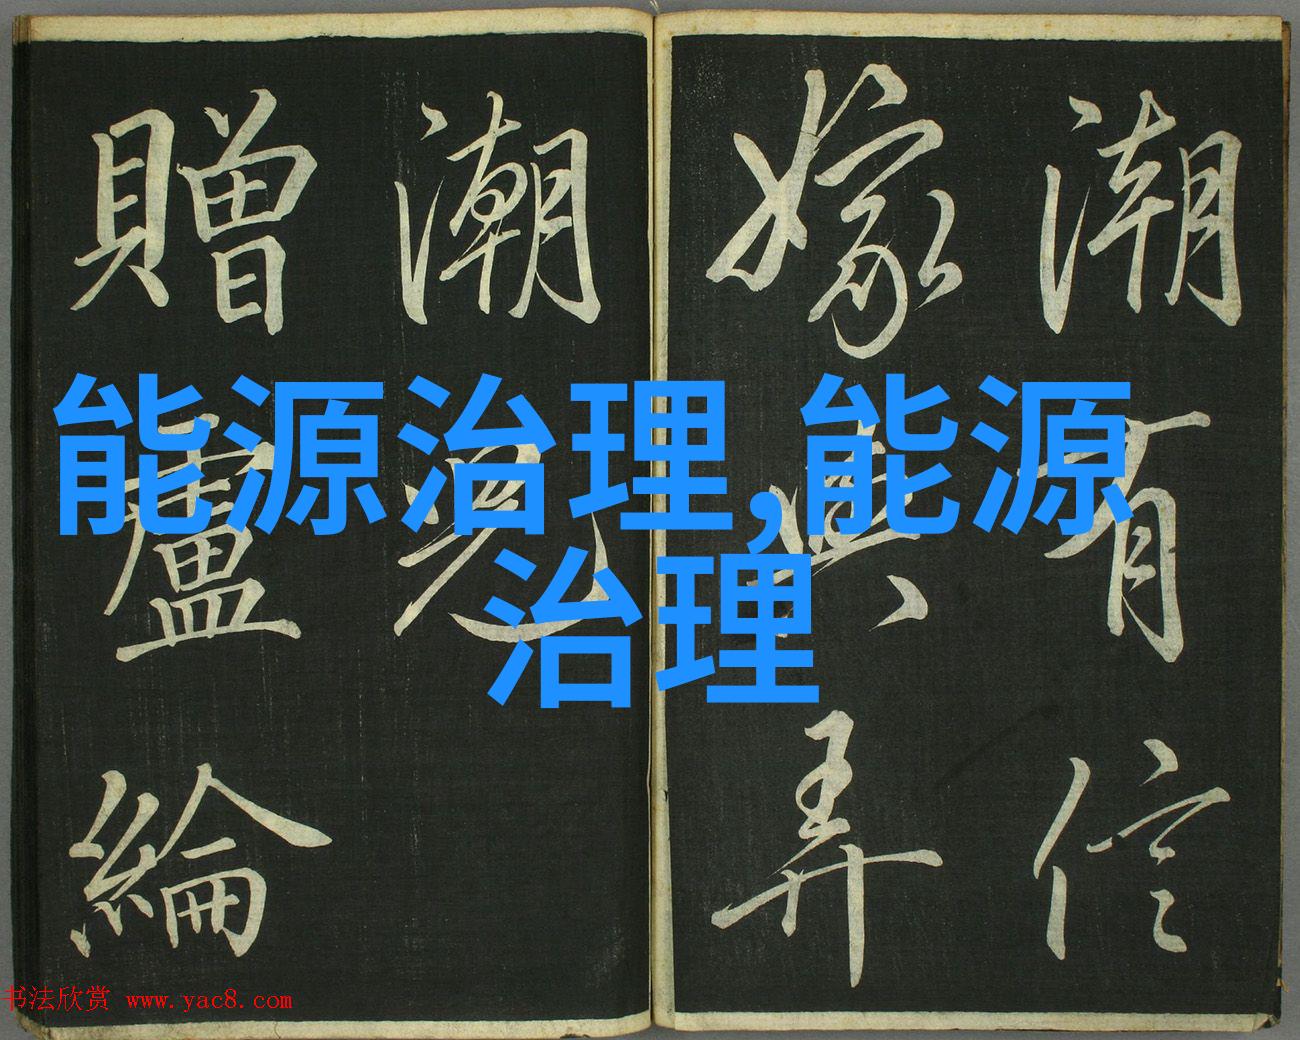 潮有信
嫁與弄
潮兒
贈盧綸
能源治理,能源
治理
书法欣赏 www.yac8.com